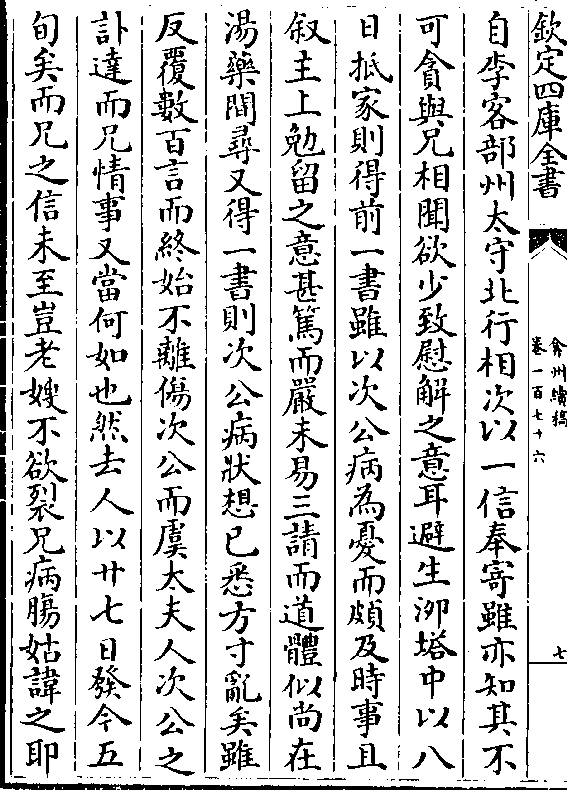 欽定四庫全書
弇州續稿
卷一百七十六
七
自李客部州太守北行相次以一信奉寄雖亦知其不
可貪與兄相聞欲少致慰解之意耳避生泖塔中以八
日抵家則得前一書雖以次公病為憂而頗及時事且
叙主上勉留之意甚篤而嚴未易三請而道體似尚在
湯藥間尋又得一書則次公病狀想已悉方寸亂矣雖
反覆數百言而終始不離傷次公而虞太夫人次公之
訃達而兄情事又當何如也然去人以廿七日發今五
旬矣而兄之信未至豈老嫂不欲裂兄病腸姑諱之耶